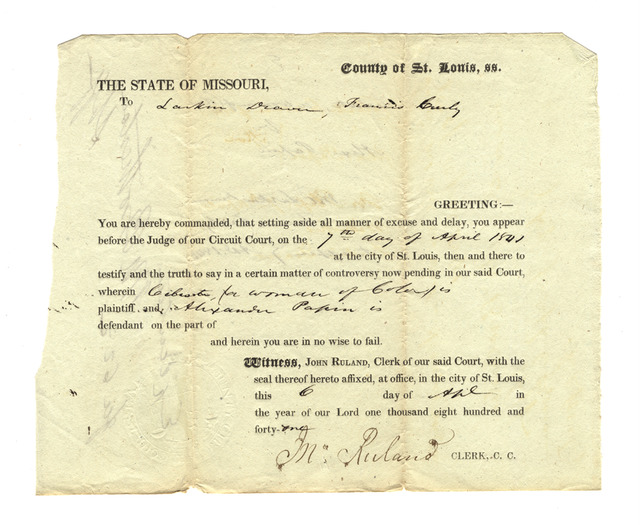 County of St. Louis, ss.
THE STATE OF MISSOURI,
To Larkin Deaver, Francis
GREETING:—
You are hereby commanded, that setting aside all manner of excuse and delay, you appear
before the Judge of our Circuit Court, on the 7th day of April 1841
at the city of St. Louis, then and there to
testify and the truth to say in a certain matter of controversy now pending in our said Court,
wherein (a woman of Color) is
plaintiff and, Alexander Papin is
defendant on the part of
and herein you are in no wise to fail.
Witness, JOHN RULAND, Clerk of our said Court, with the
seal thereof hereto affixed, at office, in the city of St. Louis,
this 6 day of Apl in
the year of our Lord one thousand eight hundred and
forty-one
Jno Ruland CLERK, C. C.